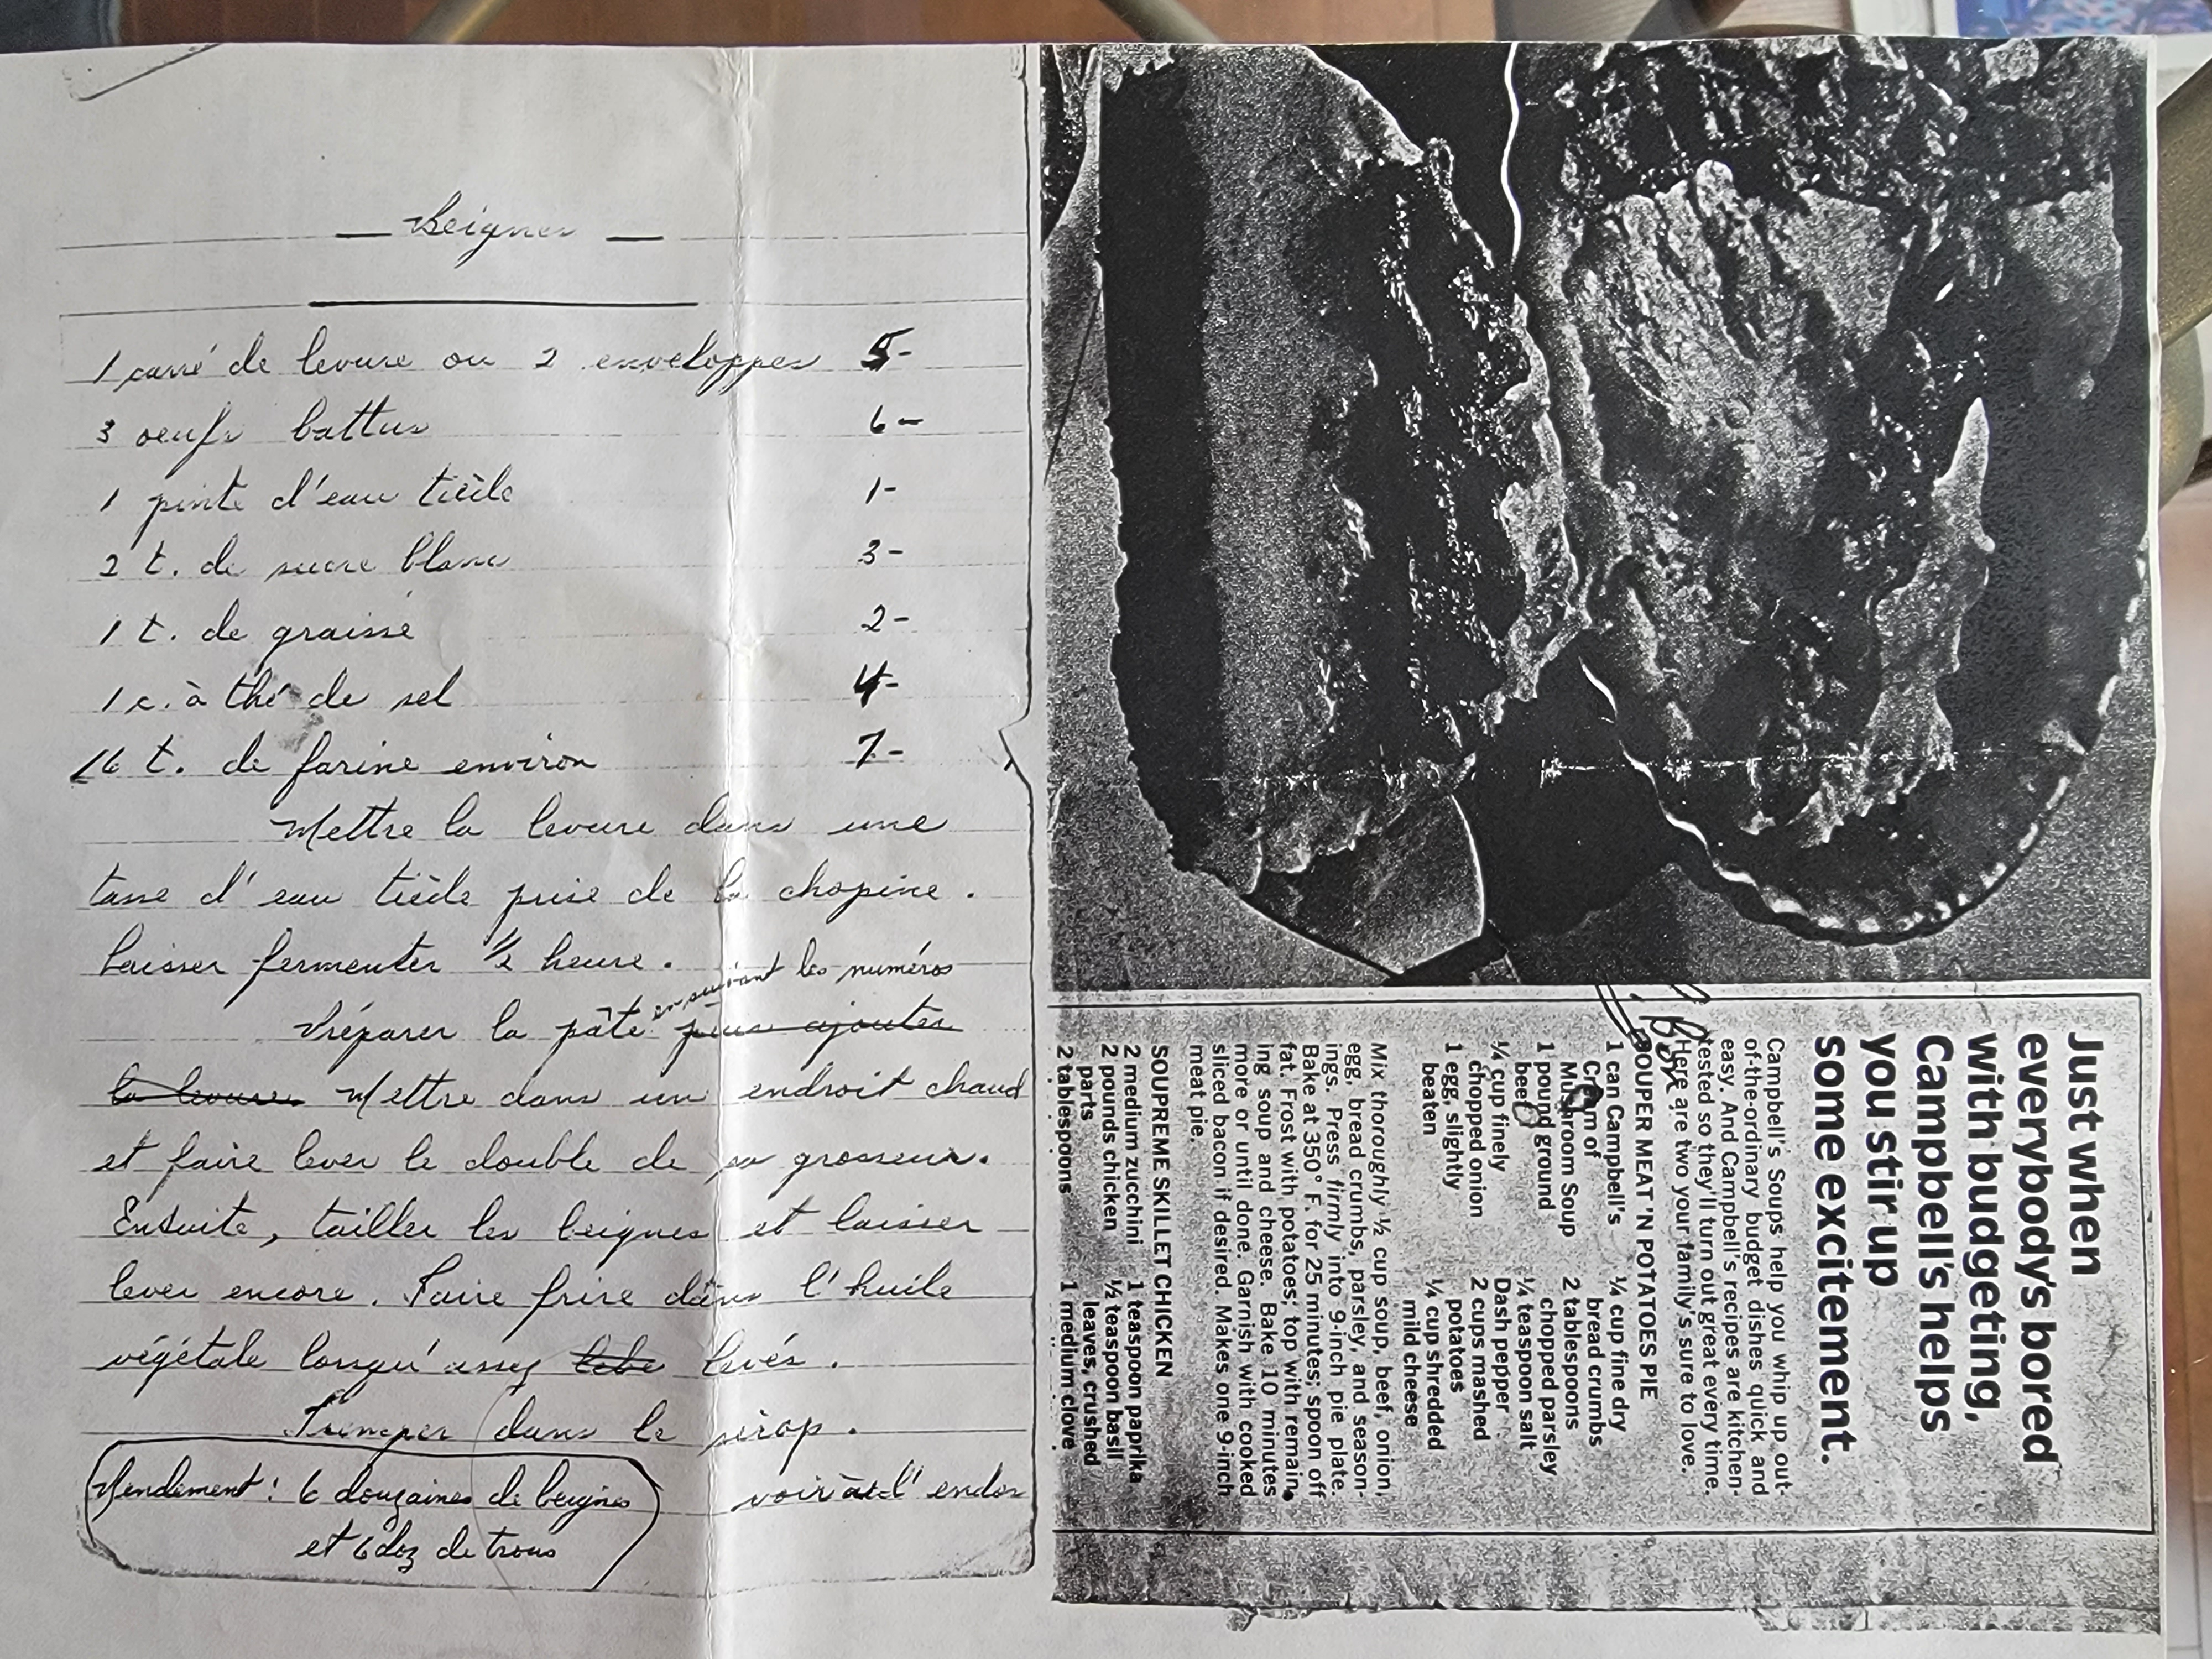 — Beignes —
1 carré de levure ou 2 enveloppes 5-
3 oeufs battus 6-
1 pinte d'eau tiède 1-
2 t. de sucre blanc 3-
1 t. de graisse 2-
1 c. à thé de sel 4-
16 t. de farine environ 7-
Mettre la levure dans une
tasse d'eau tiède prise de la chopine.
Laisser fermenter ½ heure.
en suivant les numéros
Préparer la pâte puis ajouter
la levure. Mettre dans un endroit chaud
et faire lever le double de sa grosseur.
Ensuite, tailler les beignes et laisser
lever encore. Faire frire dans l'huile
végétale lorsqu'assez levés.
Tremper dans le sirop.
Rendement : 6 douzaines de beignes voir à l'endos
et 6 doz de trous
Just when
everybody's bored
with budgeting,
Campbell's helps
you stir up
some excitement.
Campbell's Soups help you whip up out-
of-the-ordinary budget dishes quick and
easy. And Campbell's recipes are kitchen-
tested so they'll turn out great every time.
Here are two your family's sure to love.
SOUPER MEAT 'N POTATOES PIE
1 can Campbell's
Cream of
Mushroom Soup
1 pound ground
beef
¼ cup finely
chopped onion
1 egg, slightly
beaten
¼ cup fine dry
bread crumbs
2 tablespoons
chopped parsley
¼ teaspoon salt
Dash pepper
2 cups mashed
potatoes
¼ cup shredded
mild cheese
Mix thoroughly ½ cup soup, beef, onion,
egg, bread crumbs, parsley, and season-
ings. Press firmly into 9-inch pie plate.
Bake at 350° F. for 25 minutes; spoon off
fat. Frost with potatoes; top with remain-
ing soup and cheese. Bake 10 minutes
more or until done. Garnish with cooked
sliced bacon if desired. Makes one 9-inch
meat pie.
SOUPREME SKILLET CHICKEN
2 medium zucchini
2 pounds chicken
parts
2 tablespoons
1 teaspoon paprika
½ teaspoon basil
leaves, crushed
1 medium clove